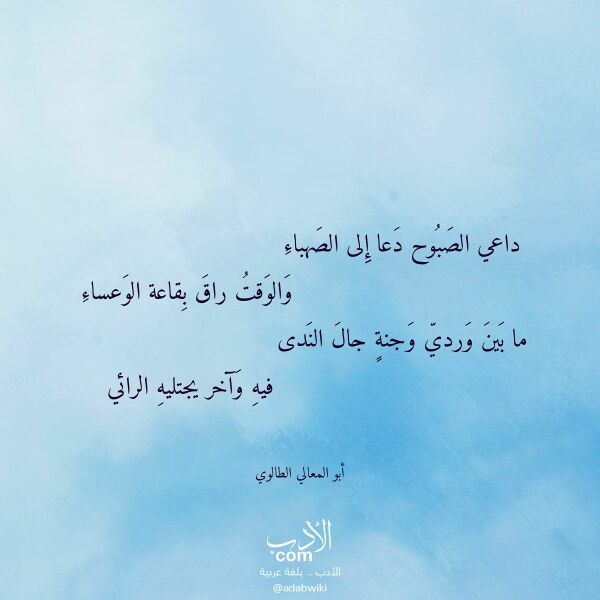 داعي الصَبُوح دَعا إِلى الصَهباءِ
وَالوَقتُ راقَ بِقاعة الوَعساءِ
ما بَينَ وَرديّ وَجنةٍ جالَ النَدى
فيهِ وَآخر يجتليهِ الرائي
أبو المعالي الطالوي
الأدب
com
الأدب .. بلغة عربية
@adabwiki